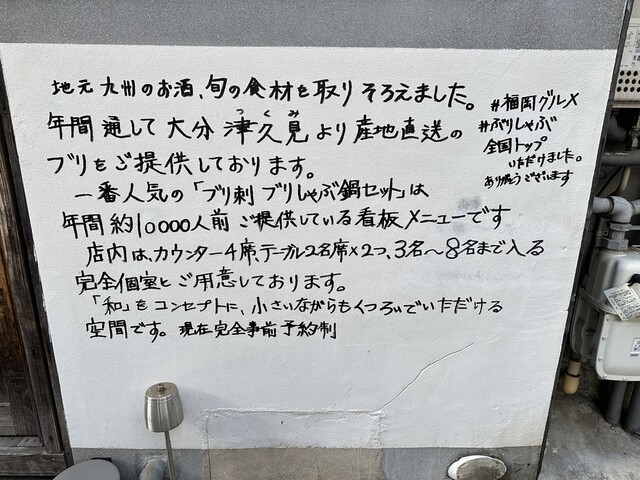 地元九州のお酒、旬の食材を取りそろえました。
年間通して大分津久見より産地直送の
つくみ
ブリをご提供しております。
一番人気の「ブリ刺ブリしゃぶ鍋セット」は
年間約10000人前ご提供している看板メニューです
店内は、カウンター4席、テーブル2名席×2つ、3名〜8名まで入る
完全個室とご用意しております。
「和」をコンセプトに、小さいながらもくつろいでいただける
空間です。現在完全事前予約制
#福岡グルメ
#ぶりしゃぶ
全国トップ
いただけました。
ありがとうございます